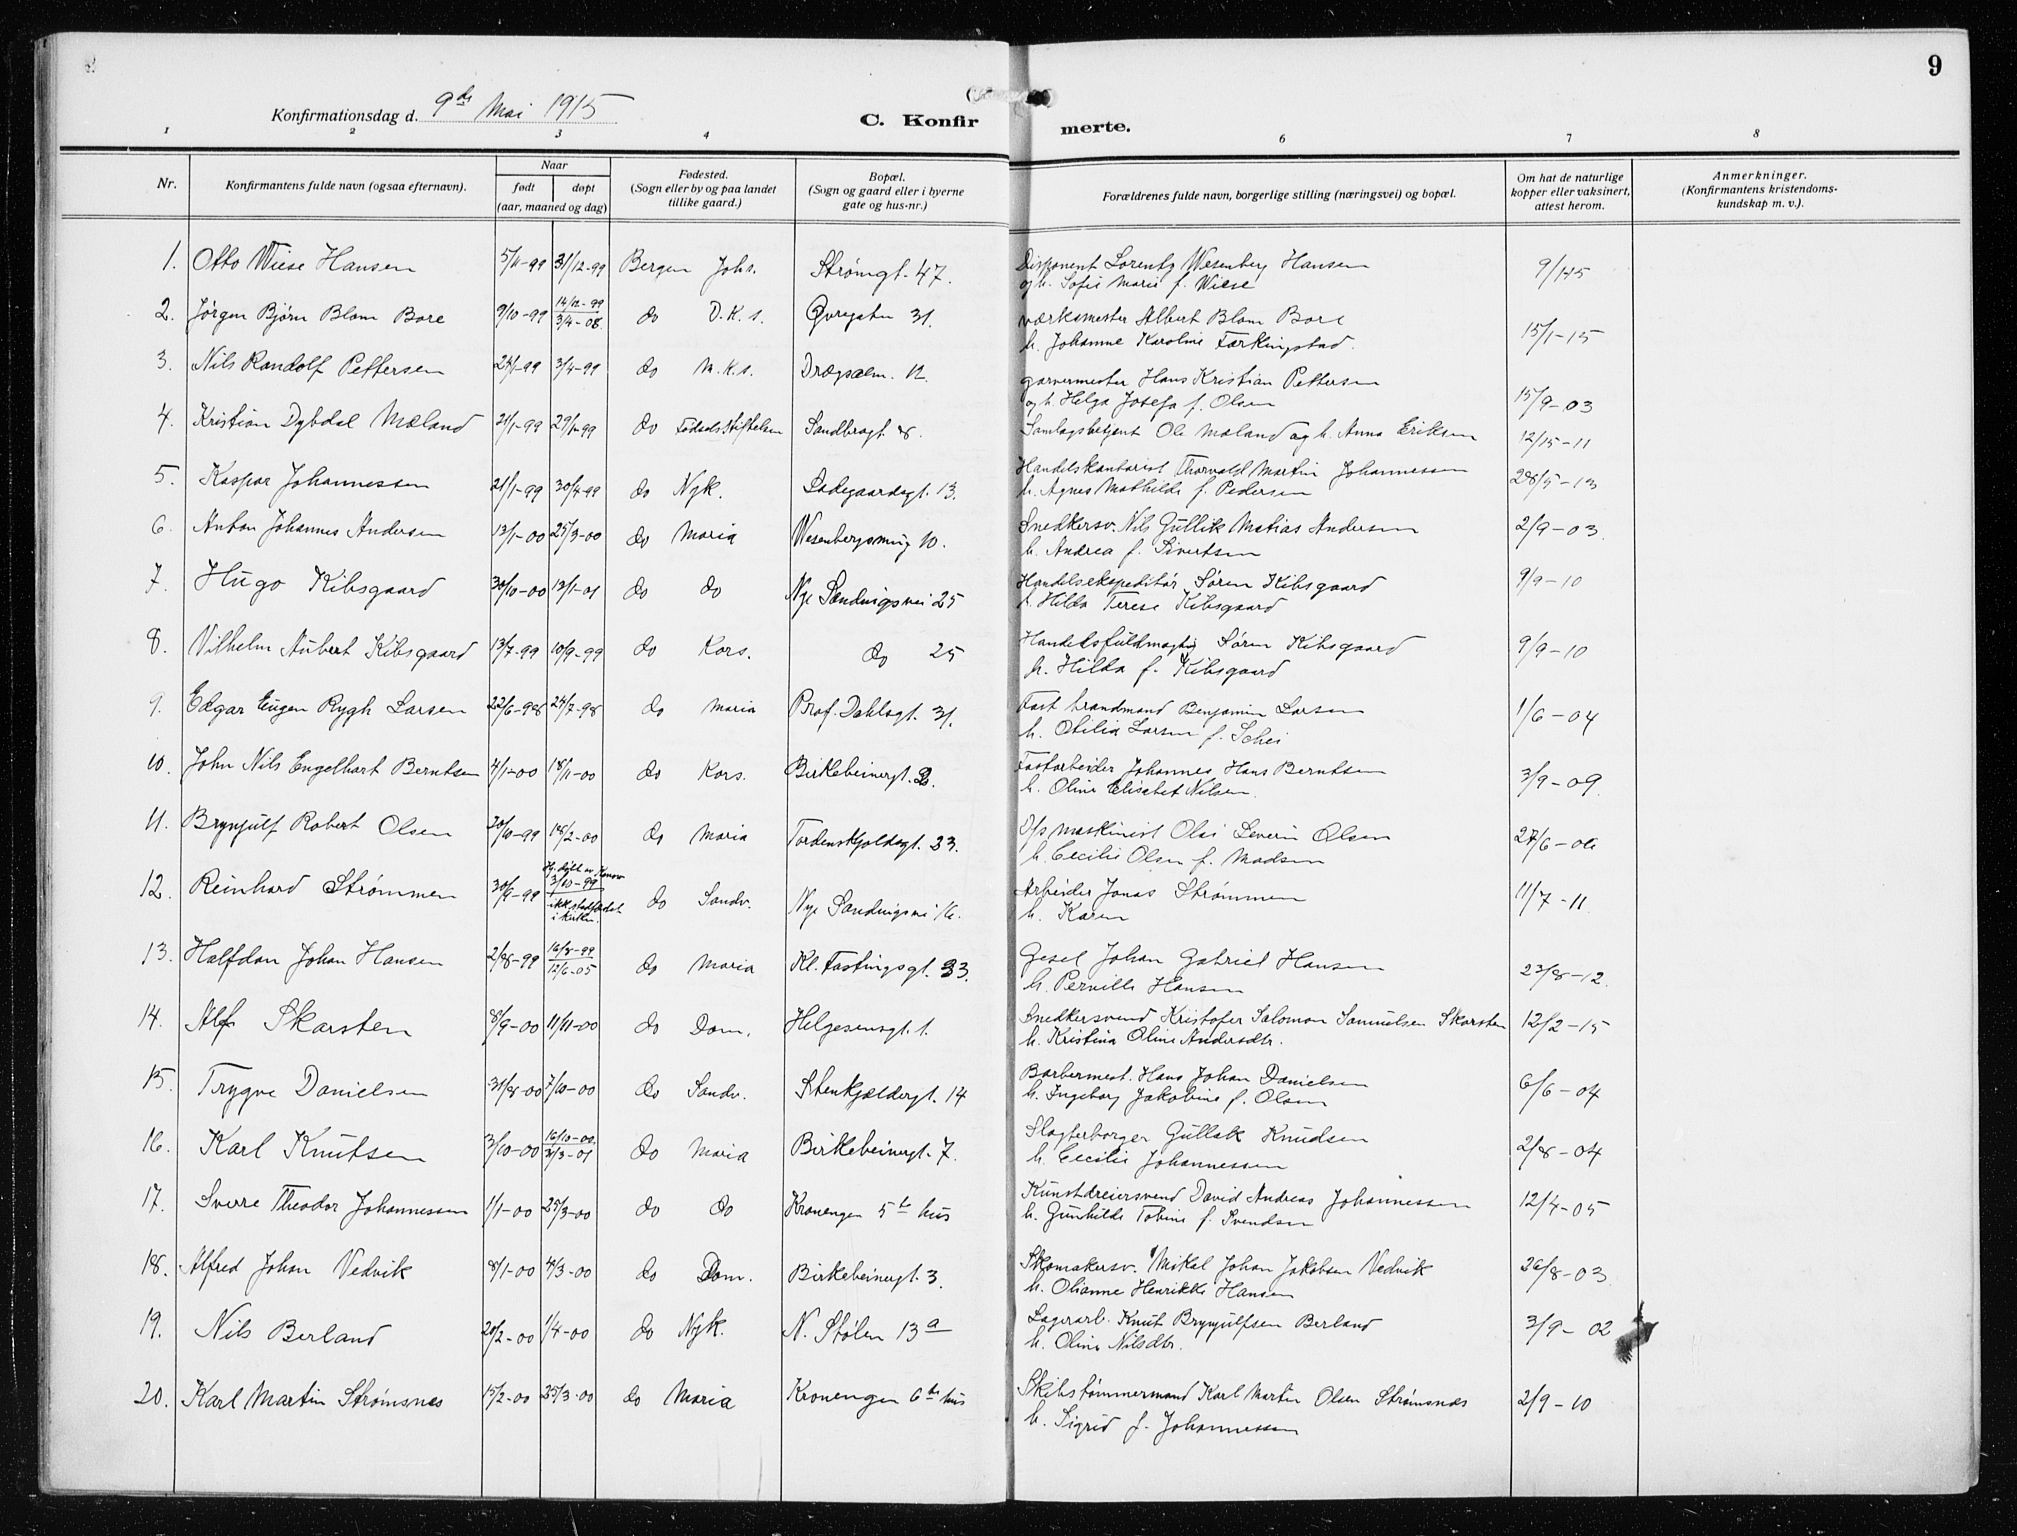 9
Konfirmationsdag d. 9de Mai 1915
C. Konfirmerte.
1 2 3 4 6 7 8
Nr. Konfirmantens fulde navn (ogsaa efternavn). Naar født døpt (aar, maaned og dag) Fødested. (Sogn eller by og paa landet tillike gaard.) Bopæl. (Sogn og gaard eller i byerne gate og hus-nr.) Forældrenes fulde navn, borgerlige stilling (næringsvei) og bopæl. Om hat de naturlige kopper eller vaksinert, attest herom. Anmerkninger. (Konfirmantens kristendoms-kundskap m. v.).
1. Otto Wiese Hansen 5/11-99 31/12-99 Bergen Johs. Strømgt. 47. Disponent Lorentz Wesenberg Hansen
og h. Sofie Marie f. Wiese
2. Jørgen Bjørn Blom Bore 9/10-99 14/12-99 3/4-08. do D.K.s. Øvregaten 31. Værksmester Albert Blom Bore 15/1-15
h. Johanne Karoline Færkingstad.
3. Nils Randolf Pettersen 24/1-99 3/4-99 do M.K.s. Drægsalm. 12. garvermester Hans Kristian Pettersen 15/9-03
og h. Helga Josefa f. Olsen
4. Kristian Dybdal Mæland 21/1-99 29/1-99 do Fødselsstiftelsen Sandbrogt. 8. Samlagsbetjent Ole Mæland og h. Anna Eriksen 12/15-11
5. Kaspar Johannessen 21/1-99 30/4-99 do Nyk. Ladegaardsgt. 13. Handelskontorist Thorvald Martin Johannessen 28/5-13
h. Agnes Mathilde f. Pedersen
6. Anton Johannes Andersen 13/1-00 25/3-00 do Maria Wesenbergsmug 10. Snedkersv. Nils Gullik Matias Andersen 2/9-03.
h. Andrea f. Sivertsen
7. Hugo Kibsgaard 30/10-00 13/1-01 do do Nye Sandvigsvei 25 Handelsekspeditør Søren Kibsgaard 9/9-10
h. Hilda Terese Kibsgaard
8. Vilhelm Aubert Kibsgaard 13/7-99 10/9-99 do Kors. do 25 Handelsfuldmægtig Søren Kibsgaard 9/9-10
h. Hilda f. Kibsgaard
9. Edgar Eugen Rygh Larsen 22/6-98 24/7-98 do Maria Prof. Dahlsgt. 31. Fast brandmand Benjamin Larsen 1/6-04
h. Otilia Larsen f. Schei
10. John Nils Engelhart Berntsen 4/1-00 18/11-00 do Kors. Birkebeinergt. Fastarbeider Johannes Hans Berntsen 3/9-09.
h. Oline Elisebet Nilsen.
11. Brynjulf Robert Olsen 20/10-99 18/2-00 do Maria Tordenskjoldsgt. 33. D/s maskinist Olai Severin Olsen
h. Cecilie Olsen f. Madsen
12. Reinhard Strømmen 30/9-99 3/10-99 ikke stadfæstet i kirken. do Sandv. Nye Sandvigsvei 16. Arbeider Jonas Strømmen 11/7-11
h. Karen
13. Halfdan Johan Hansen 2/8-99 16/8-99 12/6-05 do Maria Kl. Fastingsgt. 33. Gesel Johan Gabriel Hansen 23/8-12.
h. Pernille Hansen
14. Alf Skarsten 8/9-00 11/11-00 do Dom. Helgesensgt. 1. Snedkersvend Kristofer Salomon Samuelsen Skarsten 12/2-15
h. Kristina Oline Andersdtr.
15. Trygve Danielsen 31/8-00 7/10-00 do Sandv. Stenkjældergt. 14 Barbermest. Hans Johan Danielsen 6/6-04
h. Ingeborg Jakobine f. Olsen
16. Karl Knutsen 3/10-00 16/10-00 31/3-01 do Maria Birkebeinergt. 7. Slagterborger Gullak Knudsen 2/8-04
h. Cecilie Johannessen
17. Sverre Theodor Johannessen 1/1-00 25/3-00 do do Kronengen 5te hus Kunstdreiersvend David Andreas Johannessen 12/4-05
h. Gunhilde Tobine f. Svendsen
18. Alfred Johan Vedvik 8/1-00 4/3-00 do Dom. Birkebeinergt. 3. Skomakersv. Mikal Johan Jakobsen Vedvik 26/8-03
h. Olianne Henrikke Hansen
19. Nils Berland 20/2-00 1/4-00 do Nyk. N. Stølen 13a Lagerarb. Knut Brynjulfsen Berland 3/9-02
h. Oline Nilsdtr.
20. Karl Martin Strømsnes 15/2-00 25/3-00 do Maria Kronengen 6te hus Skibstømmermand Karl Martin Olsen Strømsnes 2/9-10
h. Sigrid f. Johannessen